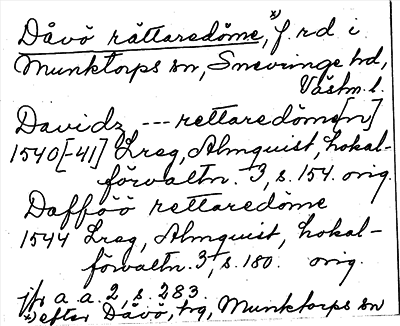 Dåvö rättaredöme,*) f. rd i
Munktorps sn, Snevringe hd,
Västm. l.
Davidz --- rettaredöme[n]
1540[-41] Lreg, Almquist, Lokal-
förvaltn. 3, s. 154. orig.
Dafföö rettaredöme
1544 Lreg, Almquist, Lokal-
förvaltn. 3, s. 180. orig.
jfr a. a. 2, s. 283
*) efter Dåvö, hg, Munktorps sn